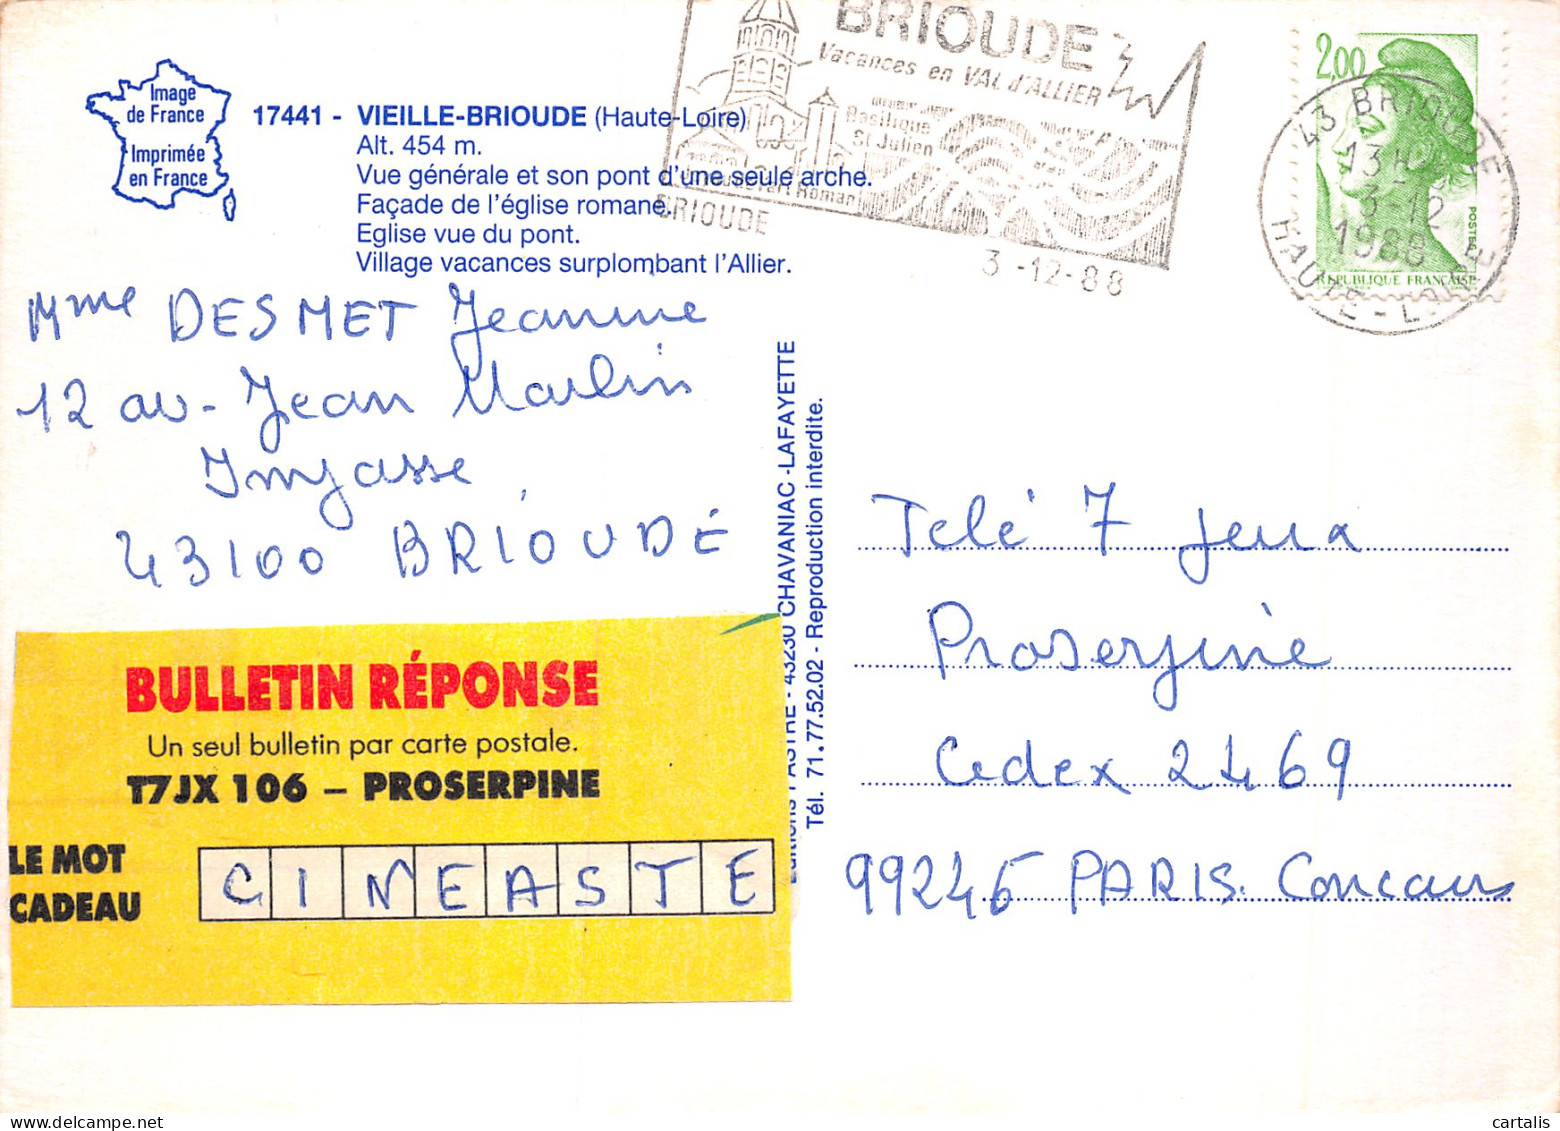 BRIOUDE
Vacances en VAL d'ALLIER
Basilique
St Julien
Roman
BRIOUDE
3-12-88
2,00
43 BRIOUDE
13H
3-12
1988
HAUTE-LOIRE
POSTES
REPUBLIQUE FRANÇAISE
Image
de France
Imprimée
en France
17441 - VIEILLE-BRIOUDE (Haute-Loire)
Alt. 454 m.
Vue générale et son pont d'une seule arche.
Façade de l'église romane.
Eglise vue du pont.
Village vacances surplombant l'Allier.
Mme DESMET Jeannine
12 av. Jean Moulin
Impasse
43100 BRIOUDE
BULLETIN RÉPONSE
Un seul bulletin par carte postale.
T7JX 106 – PROSERPINE
LE MOT
CADEAU
CINEASTE
Editions PASTRE - 43230 CHAVANIAC-LAFAYETTE
Tél. 71.77.52.02 - Reproduction interdite.
Télé 7 jeux
Proserpine
Cedex 2469
99246 PARIS. Concours
cartalis